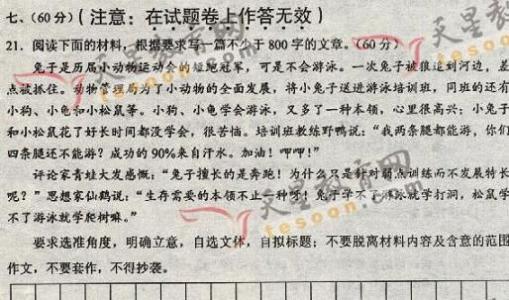 七、(60分)(注意：在试题卷上作答无效)
21. 阅读下面的材料，根据要求写一篇不少于800字的文章。(60分)
兔子是历届小动物运动会的短跑冠军，可是不会游泳。一次兔子被狼追到河边，差
点被抓住。动物管理局为了小动物的全面发展，将小兔子送进游泳培训班，同班的还有
小狗、小龟和小松鼠等。小狗、小龟学会游泳，又多了一种本领，心里很高兴；小兔子
和小松鼠花了好长时间都没学会，很苦恼。培训班教练野鸭说：“我两条腿都能游，你们
四条腿还不能游？成功的90%来自汗水。加油！呷呷！”
评论家青蛙大发感慨：“兔子擅长的是奔跑！为什么只是针对弱点训练而不发展特长
呢？”思想家仙鹤说：“生存需要的本领不止一种呀！兔子学不了游泳就学打洞，松鼠学
不了游泳就学爬树嘛。”
要求选准角度，明确立意，自选文体，自拟标题；不要脱离材料内容及含意的范围
作文，不要套作，不得抄袭。
天星教育网
tesoon.com
天星教育网
tesoon.com